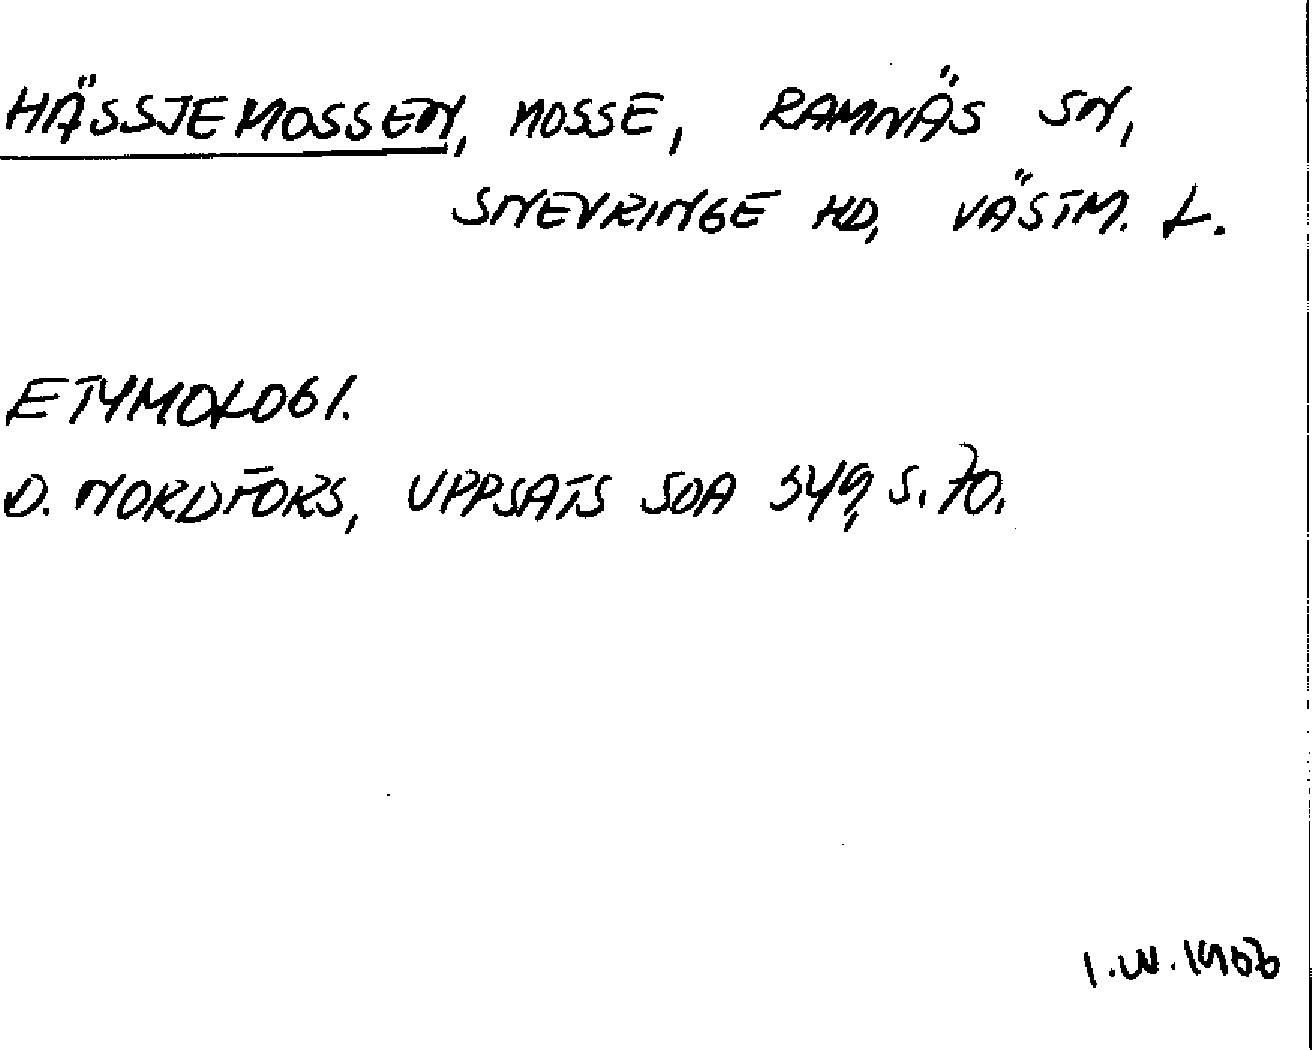 HÄSSJEMOSSEN, MOSSE, RAMNÄS SN,
SNEVRINGE HD, VÄSTM. L.
ETYMOLOGI.
D. NORDFORS, UPPSATS SOA 349, S. 70.
I.W.